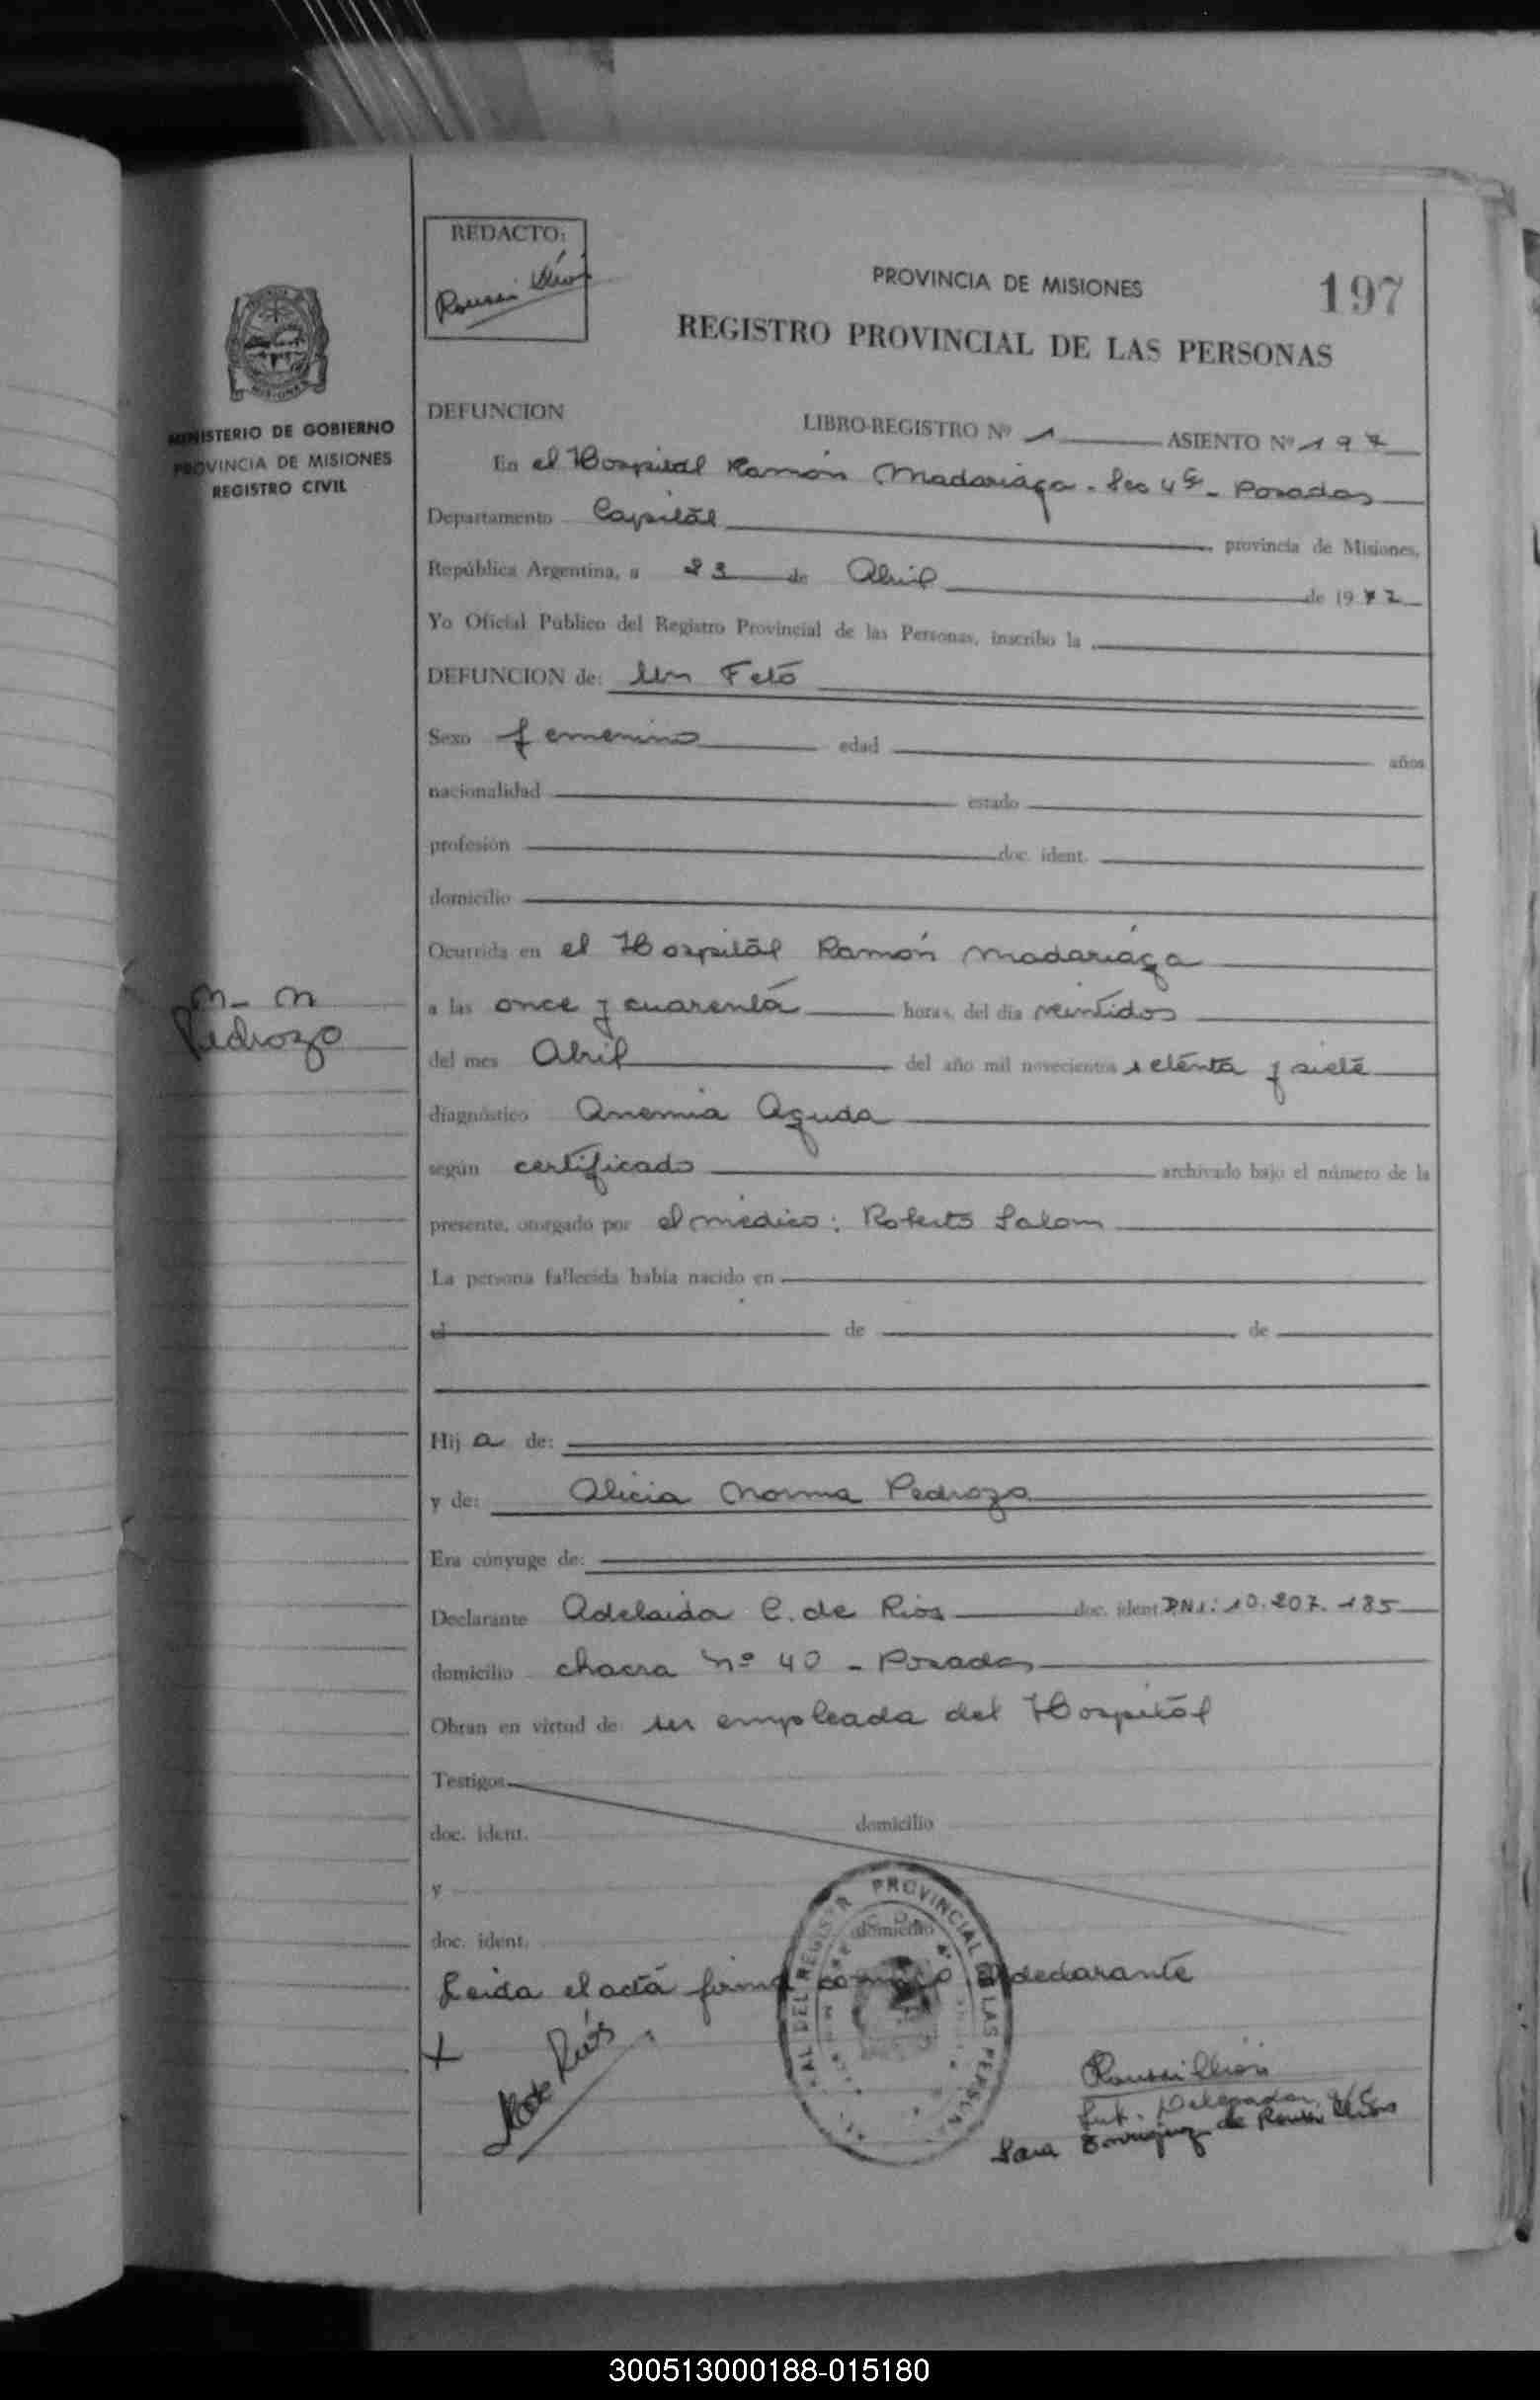 REDACTO:
PROVINCIA DE MISIONES
197
REGISTRO PROVINCIAL DE LAS PERSONAS
MINISTERIO DE GOBIERNO
PROVINCIA DE MISIONES
REGISTRO CIVIL
DEFUNCION LIBRO-REGISTRO Nº 1 ASIENTO Nº 197
En el Hospital Ramón Madariaga - Sec 4ª - Posadas
Departamento Capitál provincia de Misiones,
República Argentina, a 23 de Abril de 1977
Yo Oficial Público del Registro Provincial de las Personas, inscribo la
DEFUNCION de: Un Fetó
Sexo femenino edad años
nacionalidad estado
profesión doc. ident.
domicilio
Ocurrida en el Hospitál Ramón Madariaga
a las once y cuarentá horas, del día veintidos
M- N
Pedrozo
del mes Abril del año mil novecientos setenta y siete
diagnóstico Anemia Aguda
según certificado archivado bajo el número de la
presente, otorgado por el médico: Roberto Salom
La persona fallecida había nacido en
el de de
Hij a de:
y de: Alicia Norma Pedrozo
Era cónyuge de:
Declarante Adelaida C. de Rios doc. ident DNI: 10.207.185
domicilio chacra nº 40 - Posadas
Obran en virtud de ser empleada del Hospitál
Testigos
doc. ident. domicilio
y
doc. ident. domicilio
PROVINCIAL DE LAS PERSON
Leida el actá firma conmigo el declarante
Rios
Sub. Delegada
Sara de
300513000188-015180